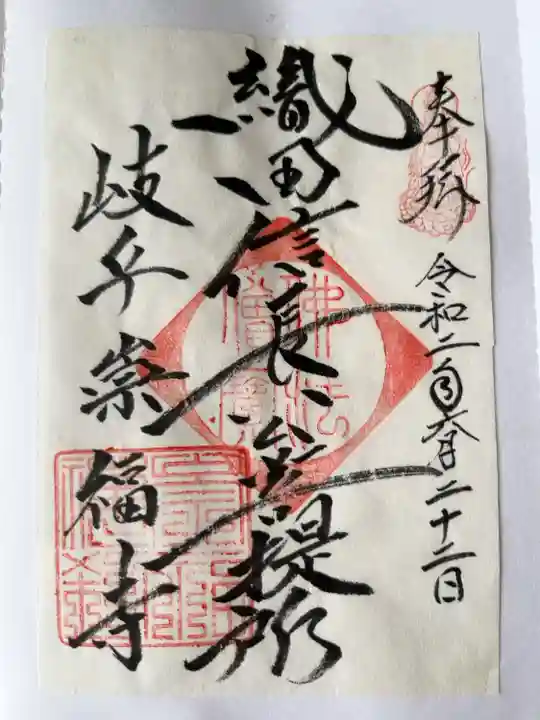 奉拝
令和二年六月二十二日
織田信長公菩提所
岐阜崇福寺
佛法
僧寳